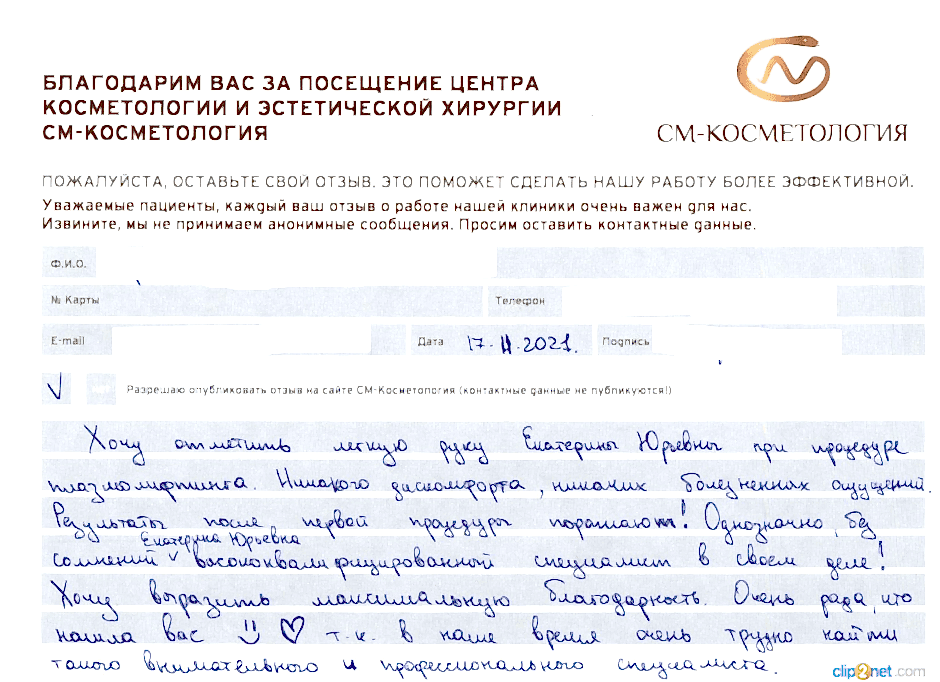 БЛАГОДАРИМ ВАС ЗА ПОСЕЩЕНИЕ ЦЕНТРА
КОСМЕТОЛОГИИ И ЭСТЕТИЧЕСКОЙ ХИРУРГИИ
СМ-КОСМЕТОЛОГИЯ
СМ-КОСМЕТОЛОГИЯ
ПОЖАЛУЙСТА, ОСТАВЬТЕ СВОЙ ОТЗЫВ. ЭТО ПОМОЖЕТ СДЕЛАТЬ НАШУ РАБОТУ БОЛЕЕ ЭФФЕКТИВНОЙ.
Уважаемые пациенты, каждый ваш отзыв о работе нашей клиники очень важен для нас.
Извините, мы не принимаем анонимные сообщения. Просим оставить контактные данные.
Ф.И.О.
№ Карты Телефон
E-mail Дата 17.11.2021. Подпись
V Разрешаю опубликовать отзыв на сайте СМ-Косметология (контактные данные не публикуются!)
Хочу отметить легкую руку Екатерины Юрьевны при процедуре
плазмолифтинга. Никакого дискомфорта, никаких болезненных ощущений.
Результаты после первой процедуры поражают! Однозначно, без
Екатерина Юрьевна
сомнений высококвалифицированный специалист в своем деле!
Хочу выразить максимальную благодарность. Очень рада, что
нашла вас :) ♡ т.к. в наше время очень трудно найти
такого внимательного и профессионального специалиста.
clip2net.com